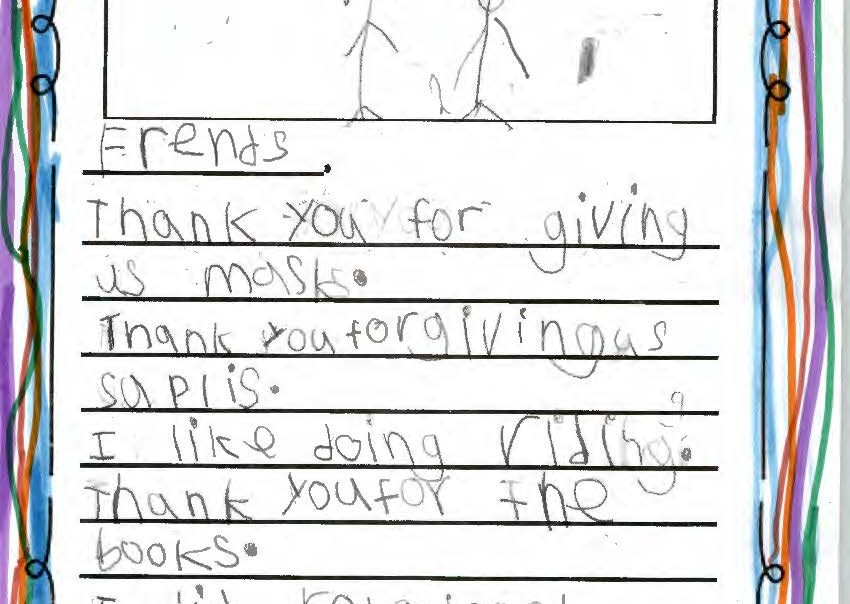 Frends.
Thank you for giving
us masks.
Thank you for giving us
saplis.
I like doing riding.
Thank you for the
books.
I